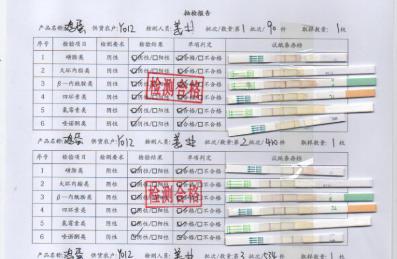 抽检报告
产品名称:鸡蛋 供货农户Y012 检测人员: 批次/数量:第1批次/90件 取样数量:1枚
序号 检验项目 检测要求 检验结果 单项判定 试纸条存档
1 磺胺类 阴性 ☑阴性/□阳性 ☑合格/□不合格
2 大环内酯类 阴性 ☑阴性/□阳性 ☑合格/□不合格
3 β-内酰胺类 阴性 ☑阴性/□阳性 ☑合格/□不合格
4 四环素类 阴性 ☑阴性/□阳性 ☑合格/□不合格
5 氟霉素类 阴性 ☑阴性/□阳性 ☑合格/□不合格
6 喹诺酮类 阴性 ☑阴性/□阳性 ☑合格/□不合格
检测合格
产品名称:鸡蛋 供货农户Y012 检测人员: 批次/数量:第2批次/件 取样数量:1枚
序号 检验项目 检测要求 检验结果 单项判定 试纸条存档
1 磺胺类 阴性 ☑阴性/□阳性 ☑合格/□不合格
2 大环内酯类 阴性 ☑阴性/□阳性 ☑合格/□不合格
3 β-内酰胺类 阴性 ☑阴性/□阳性 ☑合格/□不合格
4 四环素类 阴性 ☑阴性/□阳性 ☑合格/□不合格
5 氟霉素类 阴性 ☑阴性/□阳性 ☑合格/□不合格
6 喹诺酮类 阴性 ☑阴性/□阳性 ☑合格/□不合格
检测合格
产品名称:鸡蛋 供货农户Y012 检测人员: 批次/数量:第3批次/件 取样数量:1枚